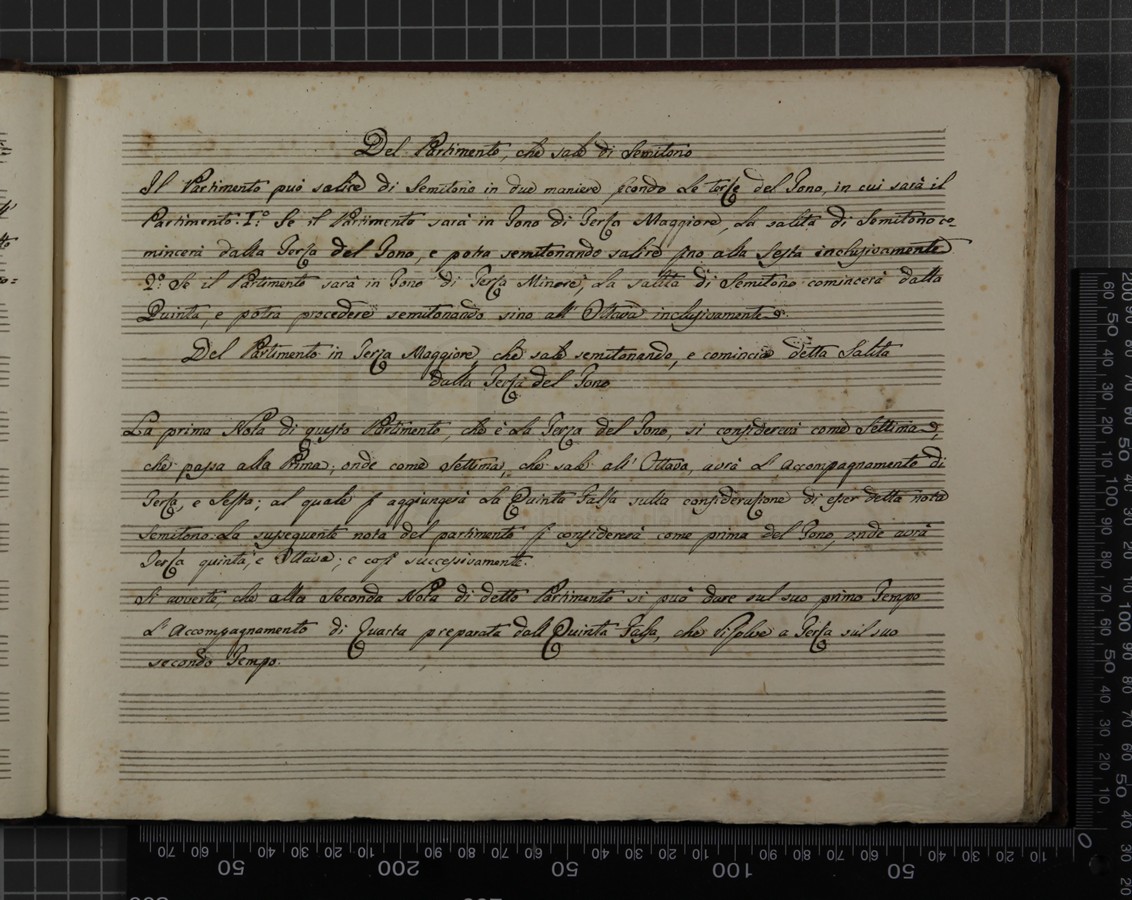 Del Partimento, che sale di Semitono
Il Partimento può salire di Semitono in due maniere secondo le terze del Tono, in cui sarà il
Partimento. I.º Se il Partimento sarà in Tono di Terza Maggiore, la salita di Semitono co-
mincerà dalla Terza del Tono, e potrà semitonando salire sino alla Sesta inclusivamente
2.º Se il Partimento sarà in Tono di Terza Minore, la salita di Semitono comincerà dalla
Quinta, e potrà procedere semitonando sino all' Ottava inclusivamente.
Del Partimento in Terza Maggiore, che sale semitonando, e comincia detta Salita
dalla Terza del Tono
La prima Nota di questo Partimento, che è la Terza del Tono, si considererà come Settima,
che passa alla Prima; onde come Settima, che sale all' Ottava, avrà l' accompagnamento di
Terza, e Sesta; al quale si aggiungerà la Quinta Falsa sulla considerazione di esser detta nota
Semitono. La susseguente nota del partimento si considererà come prima del Tono, onde avrà
Terza quinta, e Ottava; e così successivamente.
Si averte, che alla Seconda Nota di detto Partimento si può dare sul suo primo Tempo
l' Accompagnamento di Quarta preparata dall Quinta Falsa, che risolve a Terza sul suo
secondo Tempo.
50
200
50
100
50
0